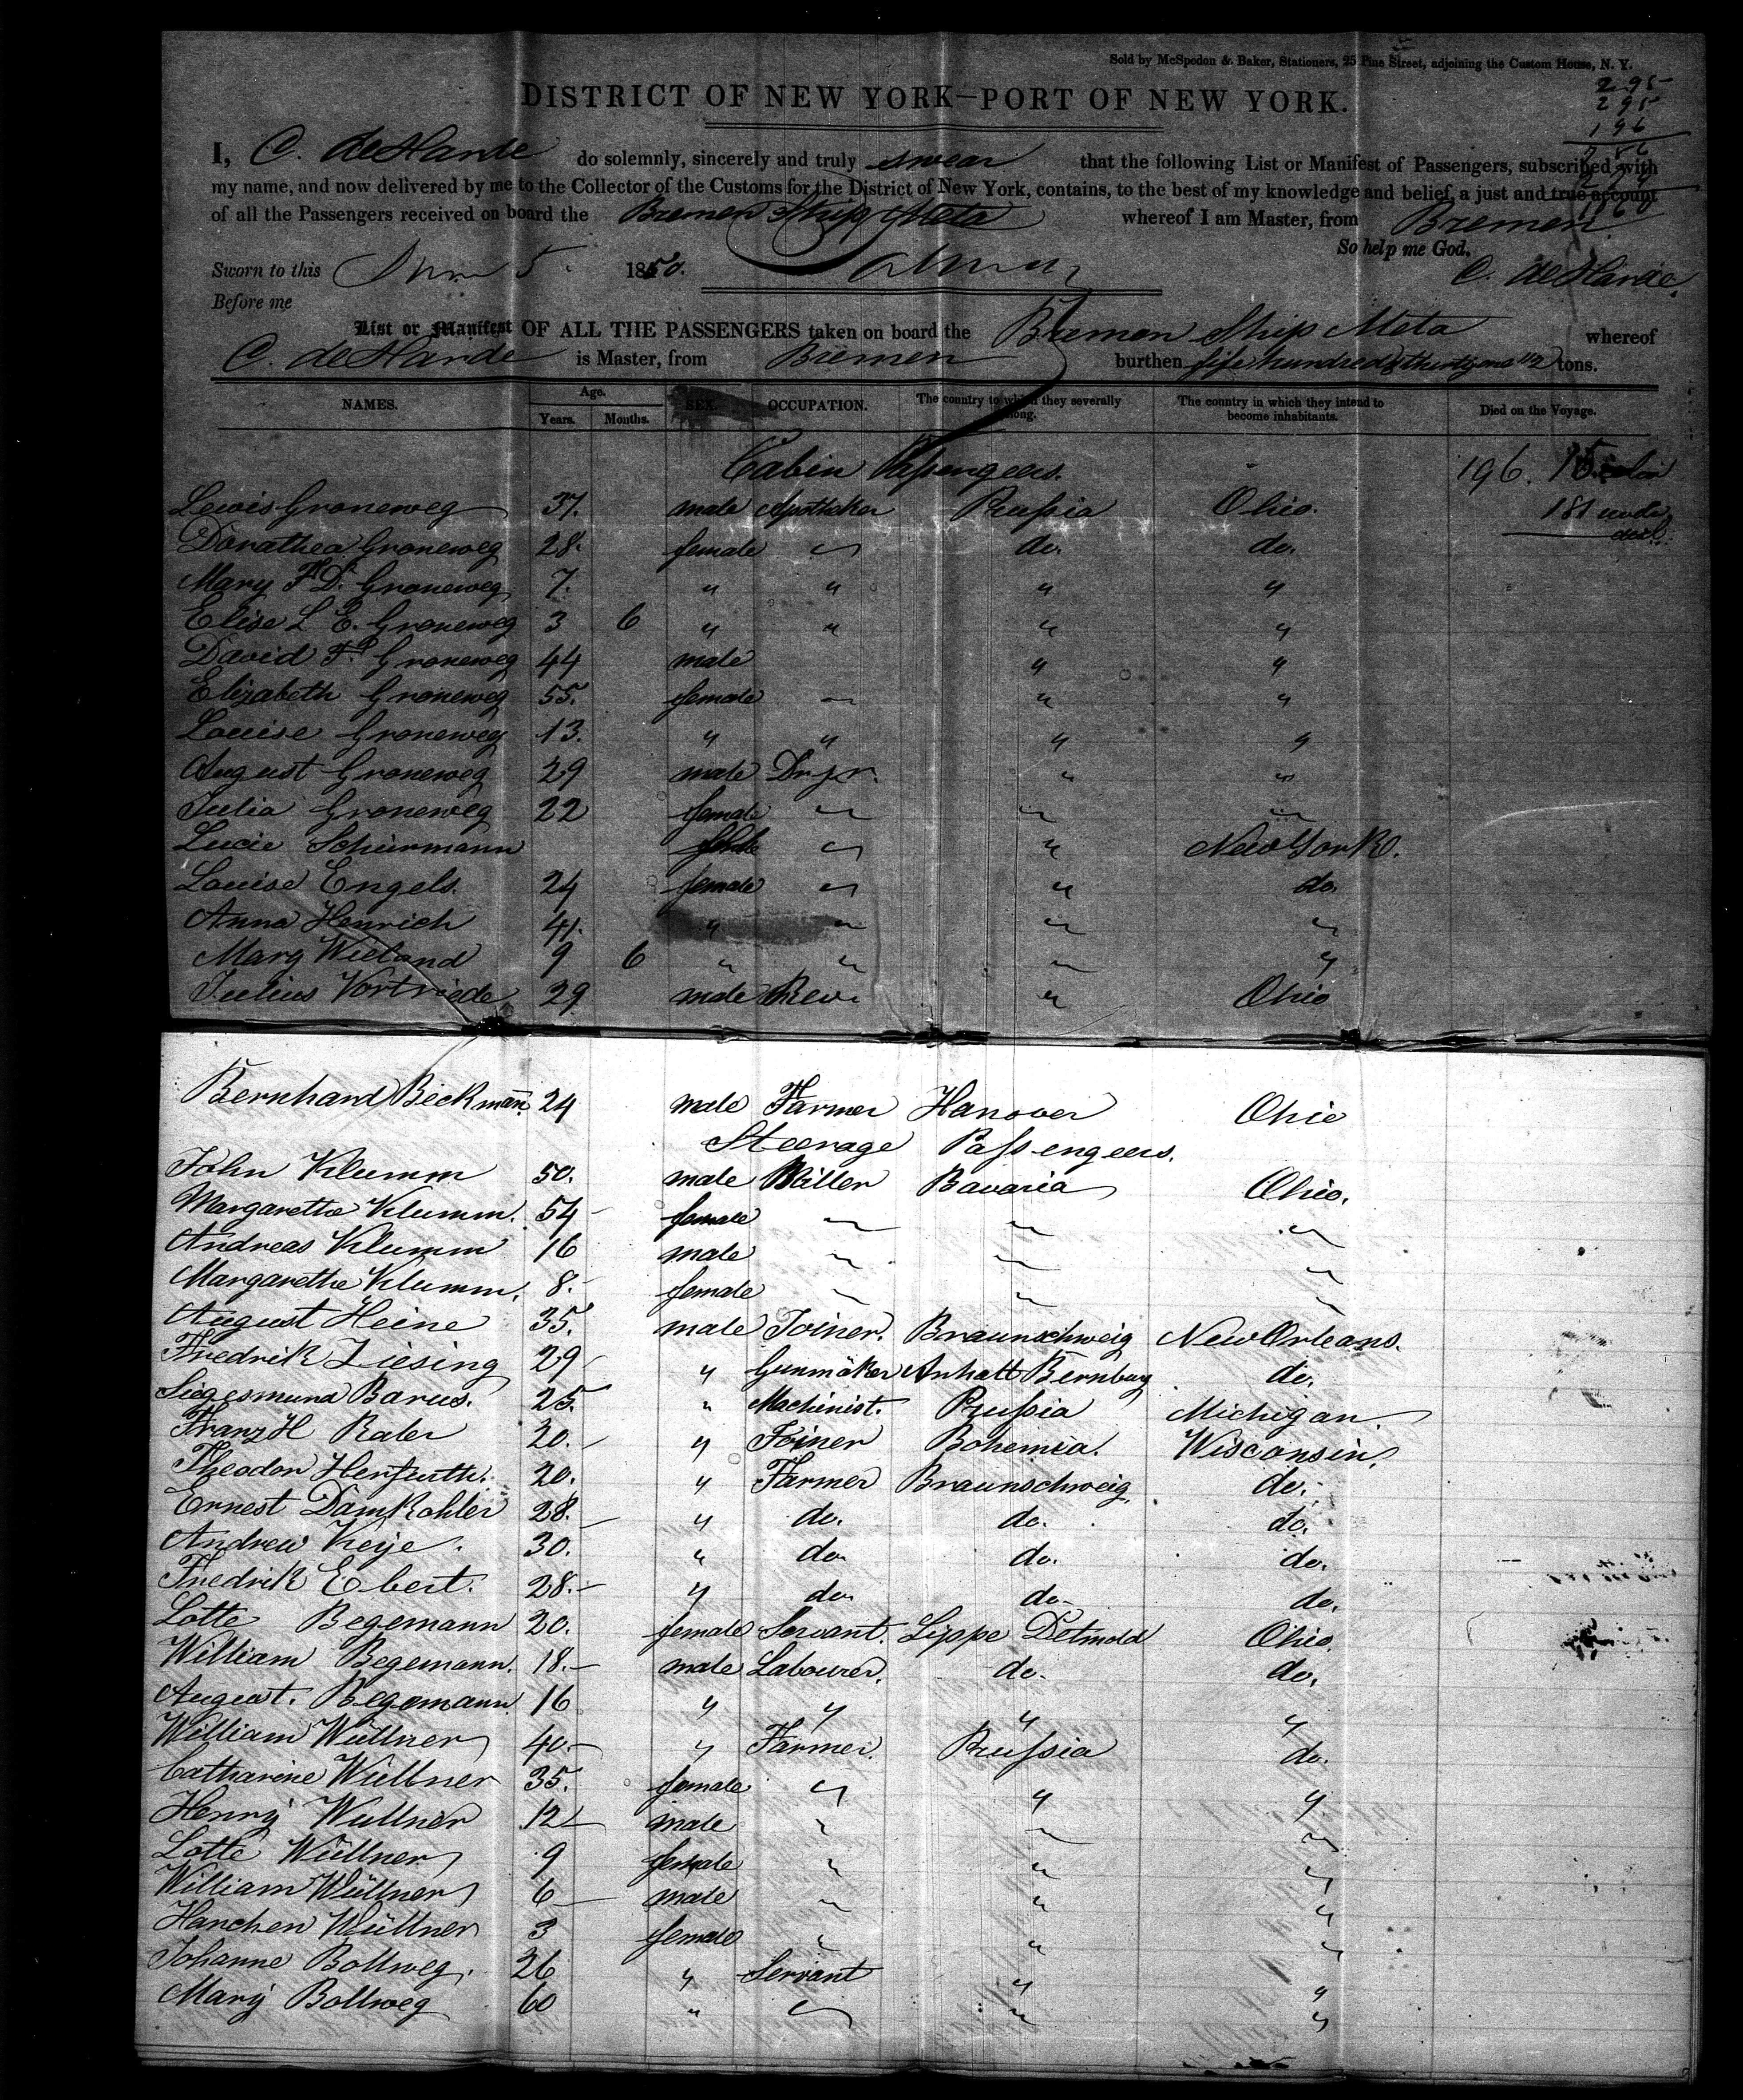 Sold by McSpedon & Baker, Stationers, 25 Pine Street, adjoining the Custom House, N. Y.
295
295
196
DISTRICT OF NEW YORK—PORT OF NEW YORK.
I, C. deHarde do solemnly, sincerely and truly swear that the following List or Manifest of Passengers, subscribed with
my name, and now delivered by me to the Collector of the Customs for the District of New York, contains, to the best of my knowledge and belief, a just and true account
of all the Passengers received on board the Bremen Ship Meta whereof I am Master, from Bremen
So help me God.
Sworn to this 5. 1850. C. deHarde.
Before me
List or Manifest OF ALL THE PASSENGERS taken on board the Bremen Ship Meta whereof
C. deHarde is Master, from Bremen burthen fife hundred & thirtyone 11/2 tons.
NAMES. Age. Years. Months. SEX. OCCUPATION. The country to which they severally belong. The country in which they intend to become inhabitants. Died on the Voyage.
Cabin Passengers. 196. 15
Lewis Groneweg 37. male Apotheker Prussia Ohio. 181 under
Dorathea Groneweg 28. female do. do. deck
Mary F D. Groneweg 7. " " " "
Elise L E. Groneweg 3 6 " " " "
David F. Groneweg 44 male " "
Elizabeth Groneweg 55. female " "
Louise Groneweg 13. " " " "
August Groneweg 29 male " "
Julia Groneweg 22 female " " "
Lucie Schürmann " " New York.
Louise Engels. 24 female " " do.
Anna Henrich 41. " " " "
Marg Wieland 9 6 " " " "
Julius Vortriede 29 male Rev. " Ohio
Bernhard Beckmann 24 male Farmer Hanover Ohio
Steerage Passengers.
John Klumm 50. male Miller Bavaria Ohio.
Margarethe Klumm. 54 female " " "
Andreas Klumm 16 male " " "
Margarethe Klumm. 8. female " " "
August Heine 35. male Joiner. Braunschweig New Orleans.
Fredrik Ziesing 29 " Gunmäker Anhalt Bernburg do.
Siegesmund Barus. 25. " Machinist. Prussia Michigan.
Franz H Raler 20. " Joiner Bohemia. Wisconsin.
Theodor Herfurth. 20. " Farmer Braunschweig. do.
Ernest Damkohler 28. " do. do. do.
Andrew Keye. 30. " do. do. do.
Fredrik Ebert. 28. " do. do. do.
Lotte Begemann 20. female Servant. Lippe Detmold Ohio.
William Begemann. 18. male Labourer. do. do.
August. Begemann 16 " " " "
William Wüllner 40. " Farmer. Prussia do.
Catharine Wüllner 35. female " " "
Henry Wullner 12 male " " "
Lotte Wüllner 9 female " " "
William Wüllner 6 male " " "
Hanchen Wüllner 3 female " " "
Johanne Bollweg. 26 " Servant " "
Mary Bollweg 60 " " " "